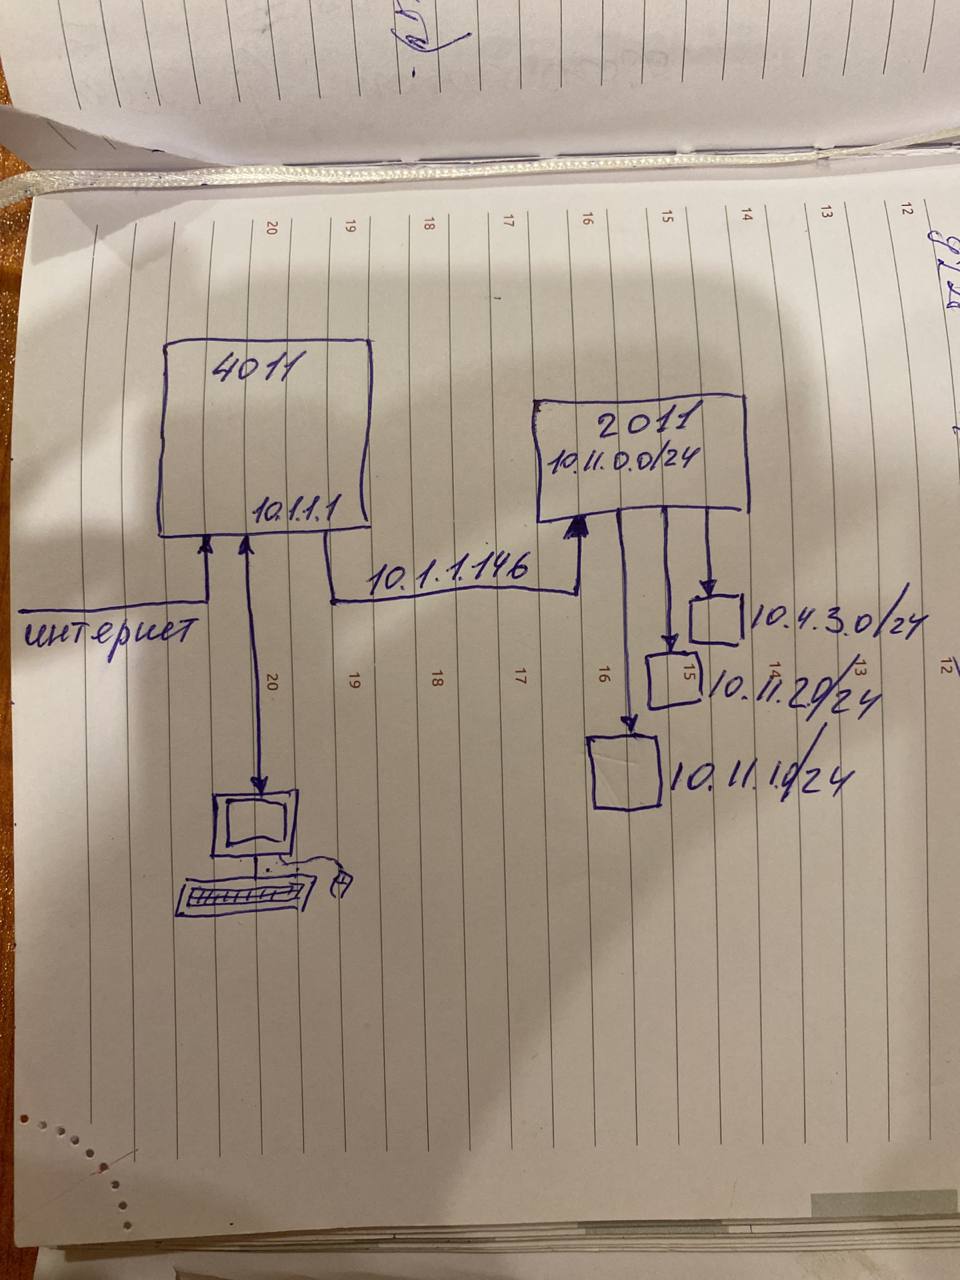 20 19 18 17 16 15 14 13 12
4011
10.1.1.1
2011
10.11.0.0/24
10.1.1.146
интернет
10.4.3.0/24
20 19 18 17 16 15 14 13 12
10.11.2.0/24
10.11.1.0/24